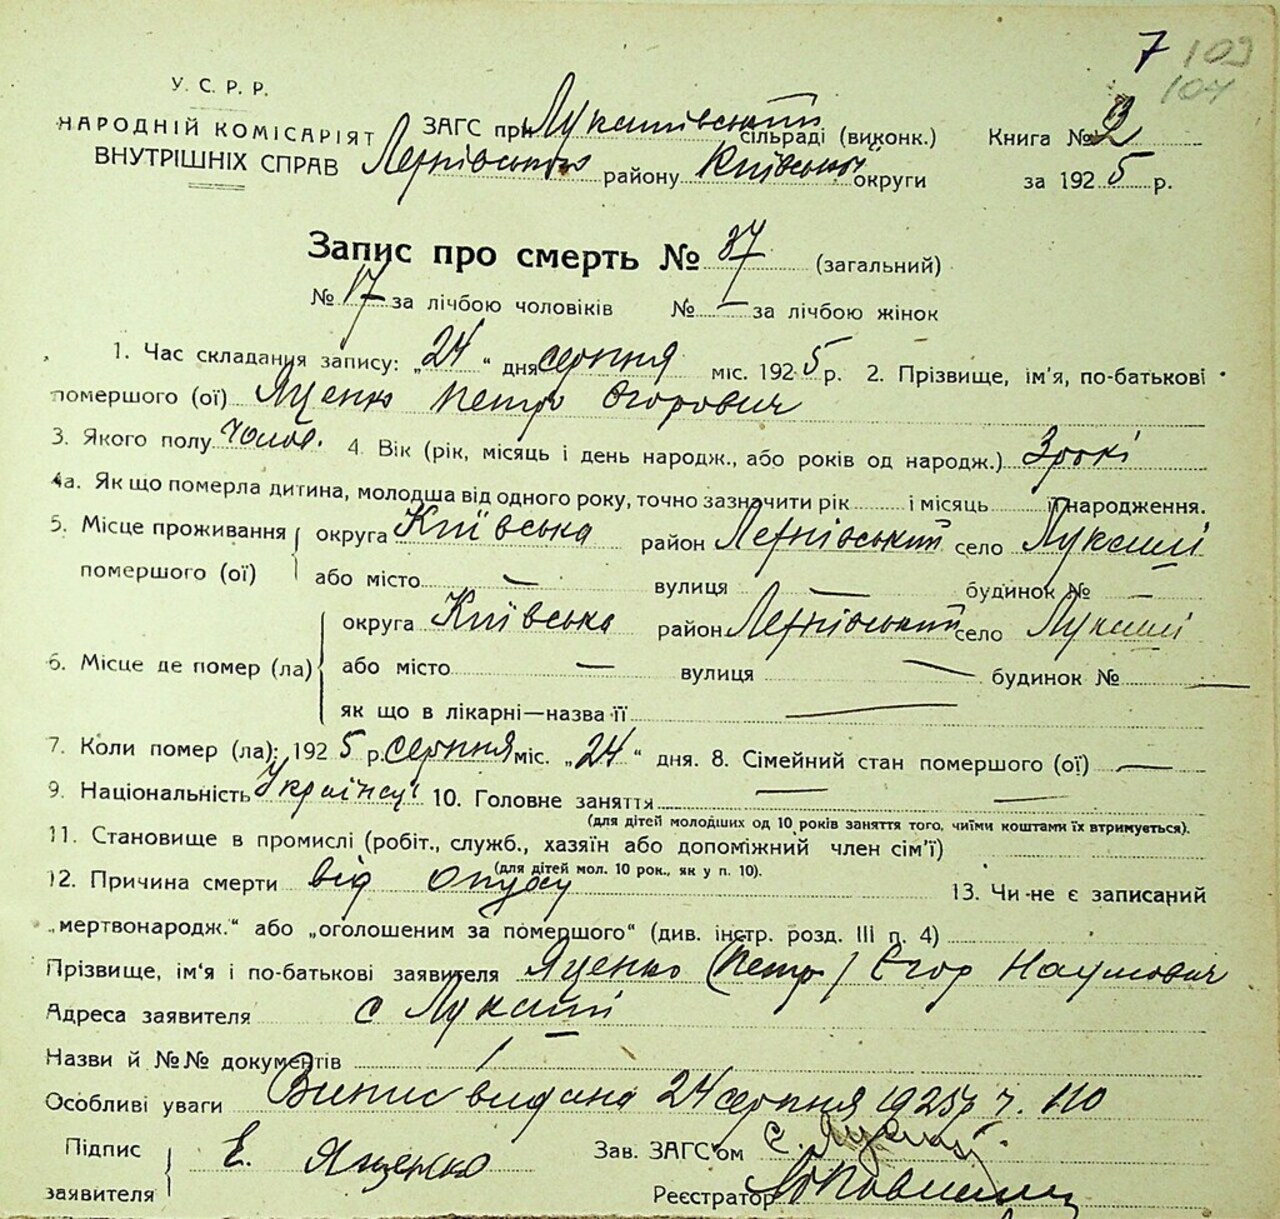 7 103
104
У. С. Р. Р.
НАРОДНІЙ КОМІСАРІЯТ
ВНУТРІШНІХ СПРАВ
ЗАГС при Лукашівський сільраді (виконк.) Книга №
району Київської округи за 1925 р.
Запис про смерть № 37 (загальний)
№ 17 за лічбою чоловіків № — за лічбою жінок
1. Час складання запису: „24“ дня серпня міс. 1925 р. 2. Прізвище, ім'я, по-батькові
помершого (ої) Яценко Петро Єгорович
3. Якого полу чолов. 4. Вік (рік, місяць і день народж., або років од народж.) 3 рокі
4а. Як що померла дитина, молодша від одного року, точно зазначити рік і місяць її народження.
5. Місце проживання помершого (ої)
округа Київська район село Лукаші
або місто — вулиця — будинок № —
6. Місце де помер (ла)
округа Київська район село Лукаші
або місто — вулиця — будинок № —
як що в лікарні—назва її —
7. Коли помер (ла): 1925 р. серпня міс. „24“ дня. 8. Сімейний стан помершого (ої) —
9. Національність 10. Головне заняття — —
(для дітей молодіших од 10 років заняття того, чиїми коштами їх втримується).
11. Становище в промислі (робіт., служб., хазяїн або допоміжний член сім'ї)
(для дітей мол. 10 рок., як у п. 10).
12. Причина смерти від 13. Чи не є записаний
„мертвонародж.“ або „оголошеним за помершого“ (див. інстр. розд. III п. 4)
Прізвище, ім'я і по-батькові заявителя Яценко (Петр) Єгор Наумович
Адреса заявителя с Лукаші
Назви й №№ документів /
Особливі уваги Випис видана 24 серпня 1925 р ч. 110
Підпис заявителя Е. Яценко
Зав. ЗАГС'ом
Реєстратор